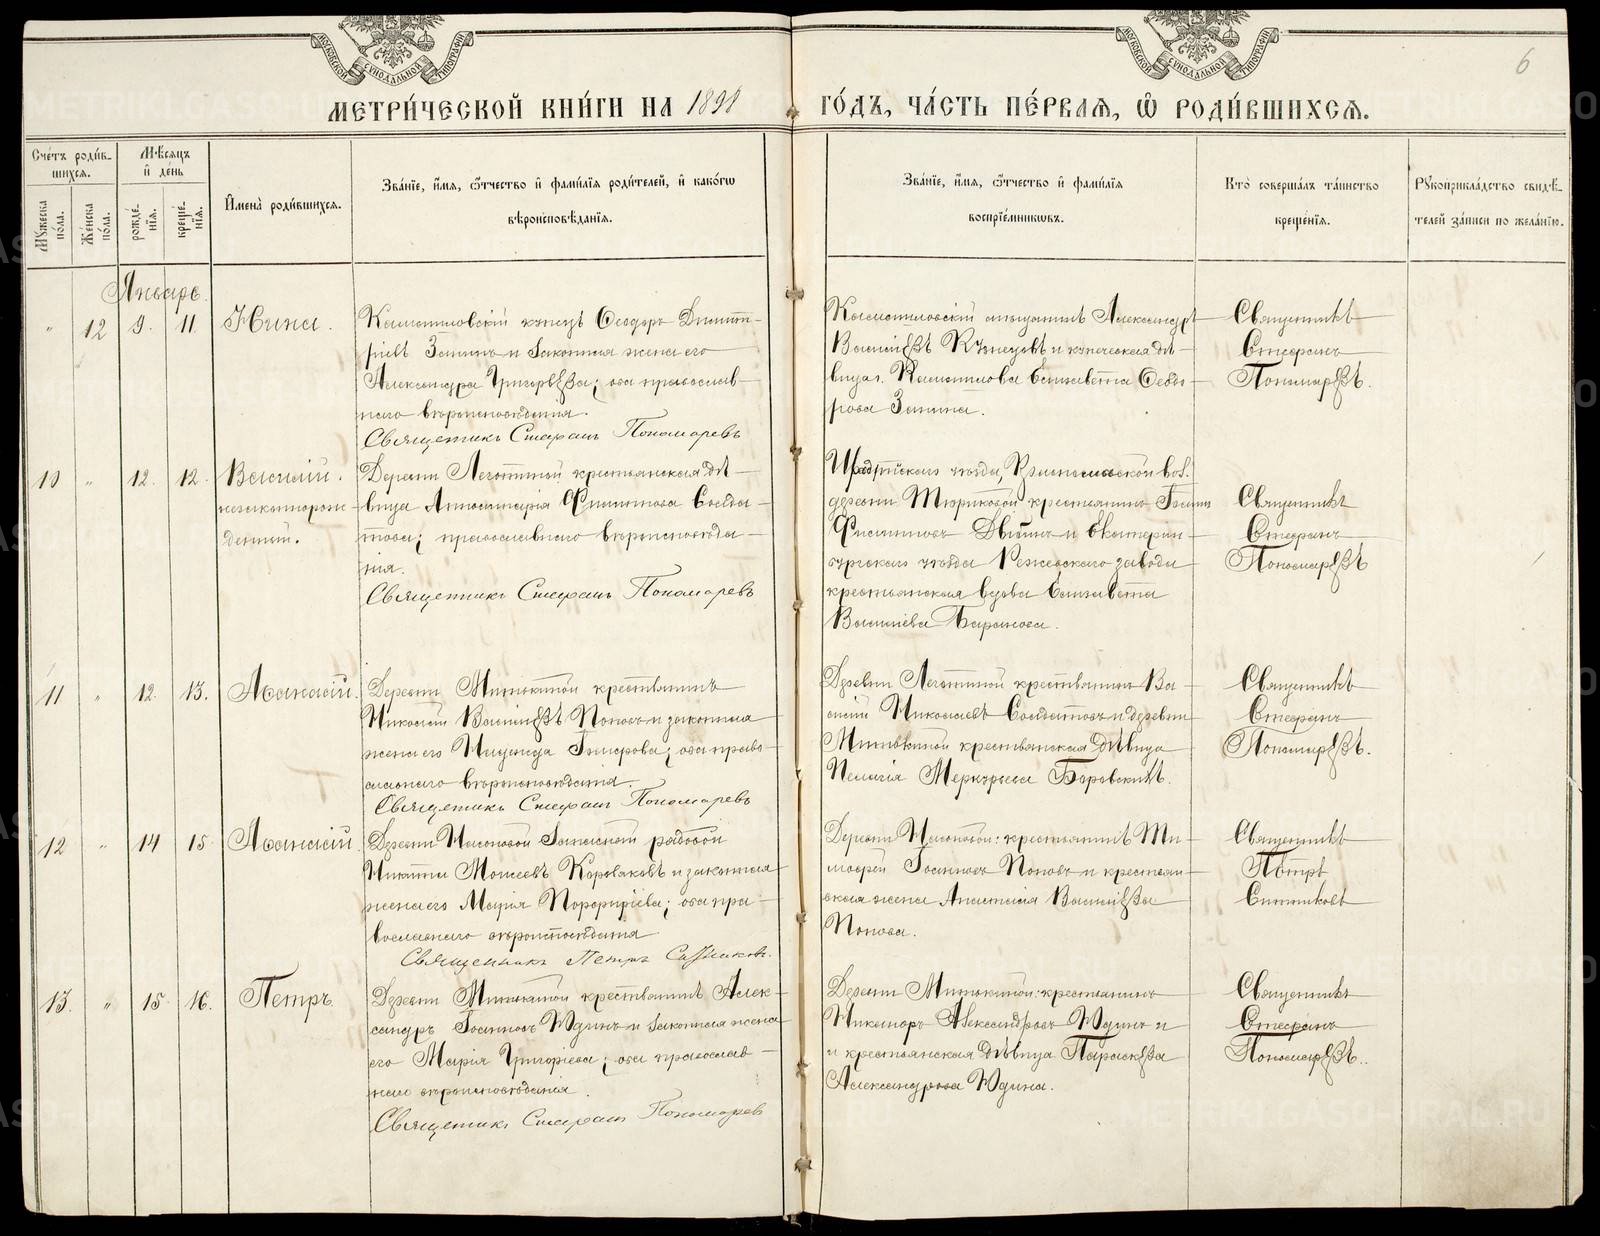 МОСКОВСКОЙ СѴНОДАЛЬНОЙ ТИПОГРАФІИ
МОСКОВСКОЙ СѴНОДАЛЬНОЙ ТИПОГРАФІИ
6
МЕТРИ́ЧЕСКОЙ КНИ́ГИ НА 1898
ГО́ДЪ, ЧА́СТЬ ПЕ́РВАѦ, Ѽ РОДИ́ВШИХСѦ.
Счéтъ роди́в-
шихсѧ.
Мѣ́сѧцъ
и҆ де́нь
Мꙋ́жеска по́ла.
Же́нска по́ла.
рожде́-
нїѧ.
креще́-
нїѧ.
И҆мена̀ роди́вшихсѧ.
Зва́нїе, и҆́мѧ, ѻ҆́тчество и҆ фами́лїѧ роди́телей, и҆ како́гѡ
вѣроисповѣ́данїѧ.
Зва́нїе, и҆́мѧ, ѻ҆́тчество и҆ фами́лїѧ
воспрїе́мникѡвъ.
Кто̀ соверша́лъ та́инство
креще́нїѧ.
Рꙋкоприкла́дство свидѣ́-
телей за́писи по жела́нїю.
Январь.
" 12 9. 11. Нина.
Камышловскій купецъ Ѳеодоръ Димит-
ріевъ Зиминъ и законная жена его
Александра Григорьева; оба православ-
наго вѣроисповѣданія.
Священникъ Стефанъ Пономаревъ
Камышловскій мѣщанинъ Александръ
Васильевъ Кузнецовъ и купеческая дѣ-
вица г. Камышлова Елизавета Ѳеодо-
рова Зимина.
Священникъ
Стефанъ
Пономаревъ.
10 " 12. 12. Василій.
незаконнорож-
денный.
Деревни Леготиной крестьянская дѣ-
вица Анастасія Филиппова Солда-
това; православнаго вѣроисповѣда-
нія.
Священникъ Стефанъ Пономаревъ
Шадринскаго уѣзда, вол.
деревни крестьянинъ
Филипповъ и Екатерин-
бургскаго уѣзда Режевскаго завода
крестьянская вдова Елизавета
Васильева Баранова.
Священникъ
Стефанъ
Пономаревъ
11 " 12. 13. Аѳанасій.
Деревни Митькиной крестьянинъ
Николай Васильевъ Поповъ и законная
жена его Надежда; оба право-
славнаго вѣроисповѣданія.
Священникъ Стефанъ Пономаревъ
Деревни Леготиной крестьянинъ Ва-
силій Николаевъ Солдатовъ и деревни
Митькиной крестьянская дѣвица
Пелагія Меркурьева Боровскихъ.
Священникъ
Стефанъ
Пономаревъ.
12 " 14 15 Аѳанасій.
Деревни запасной рядовой
Никита Моисеевъ Коровяковъ и законная
жена его Марія Порфиріева; оба пра-
вославнаго вѣроисповѣданія
Священникъ Петръ Ситниковъ.
Деревни крестьянинъ Ти-
моѳей Іоанновъ Поповъ и крестьян-
ская жена Анастасія Васильева
Попова.
Священникъ
Петръ
Ситниковъ
13. " 15 16. Петръ.
Деревни Митькиной крестьянинъ Алек-
сандръ Іоанновъ Юдинъ и законная жена
его Марія Григоріева; оба православ-
наго вѣроисповѣданія.
Священникъ Стефанъ Пономаревъ
Деревни Митькиной: крестьянинъ
Никаноръ Александровъ Юдинъ и
и крестьянская дѣвица Параскева
Александрова Юдина.
Священникъ
Стефанъ
Пономаревъ.